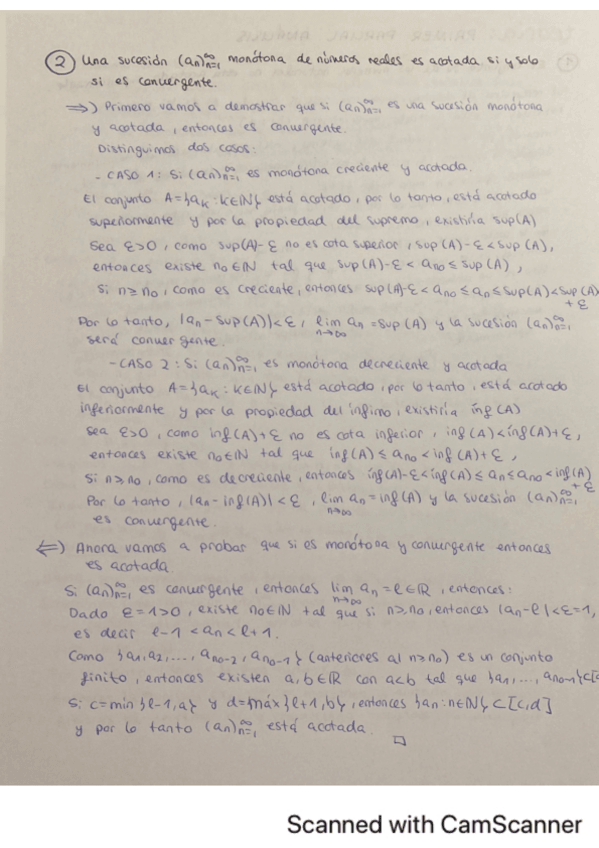 ② Una sucesión (an)∞n=1 monótona de números reales es acotada si y solo
si es convergente.
⇒) Primero vamos a demostrar que si (an)∞n=1 es una sucesión monótona
y acotada, entonces es convergente.
Distinguimos dos casos:
- CASO 1: Si (an)∞n=1 es monótona creciente y acotada.
El conjunto A={ak: k∈ℕ} está acotado, por lo tanto, está acotado
superiormente y por la propiedad del supremo, existiría sup(A)
Sea ε>0, como sup(A)-ε no es cota superior, sup(A)-ε<sup(A),
entonces existe n0∈ℕ tal que sup(A)-ε<an0≤sup(A),
Si n≥n0, como es creciente, entonces sup(A)-ε<an0≤an≤sup(A)<sup(A)
+ε
Por lo tanto, |an-sup(A)|<ε, lim n→∞ an=sup(A) y la sucesión (an)∞n=1
será convergente.
- CASO 2: Si (an)∞n=1 es monótona decreciente y acotada
El conjunto A={ak: k∈ℕ} está acotado, por lo tanto, está acotado
inferiormente y por la propiedad del ínfimo, existiría ínf(A)
Sea ε>0, como inf(A)+ε no es cota inferior, inf(A)<ínf(A)+ε,
entonces existe n0∈ℕ tal que ínf(A)≤an0<inf(A)+ε,
Si n≥n0, como es decreciente, entonces ínf(A)-ε<ínf(A)≤an≤an0<inf(A)
+ε
Por lo tanto, |an-inf(A)|<ε, lim n→∞ an=inf(A) y la sucesión (an)∞n=1
es convergente.
⇐) Ahora vamos a probar que si es monótona y convergente entonces
es acotada.
Si (an)∞n=1 es convergente, entonces lim n→∞ an=ℓ∈ℝ, entonces:
Dado ε=1>0, existe n0∈ℕ tal que si n≥n0, entonces |an-ℓ|<ε=1,
es decir ℓ-1<an<ℓ+1.
Como {a1,a2,...,an0-2,an0-1} (anteriores al n≥n0) es un conjunto
finito, entonces existen a,b∈ℝ con a<b tal que {a1,...,an0-1}⊂[
Si c=min{ℓ-1,a} y d=máx{ℓ+1,b}, entonces {an:n∈ℕ}⊂[c,d]
y por lo tanto (an)∞n=1 está acotada.
□
Scanned with CamScanner